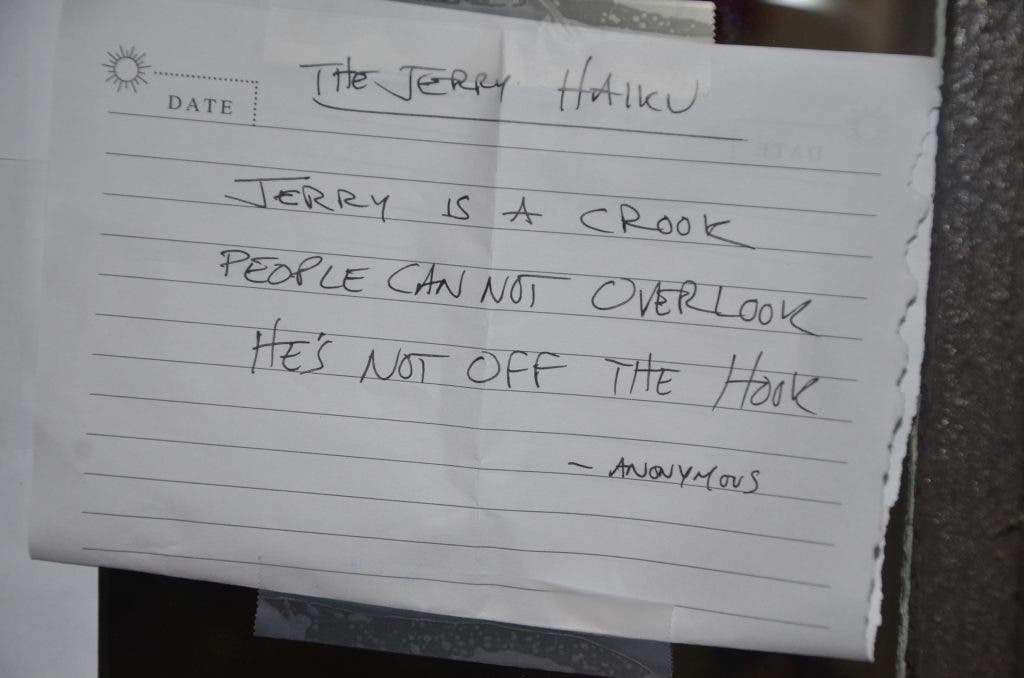 DATE
THE JERRY HAIKU
JERRY IS A CROOK
PEOPLE CAN NOT OVERLOOK
HE'S NOT OFF THE HOOK
- ANONYMOUS
DATE